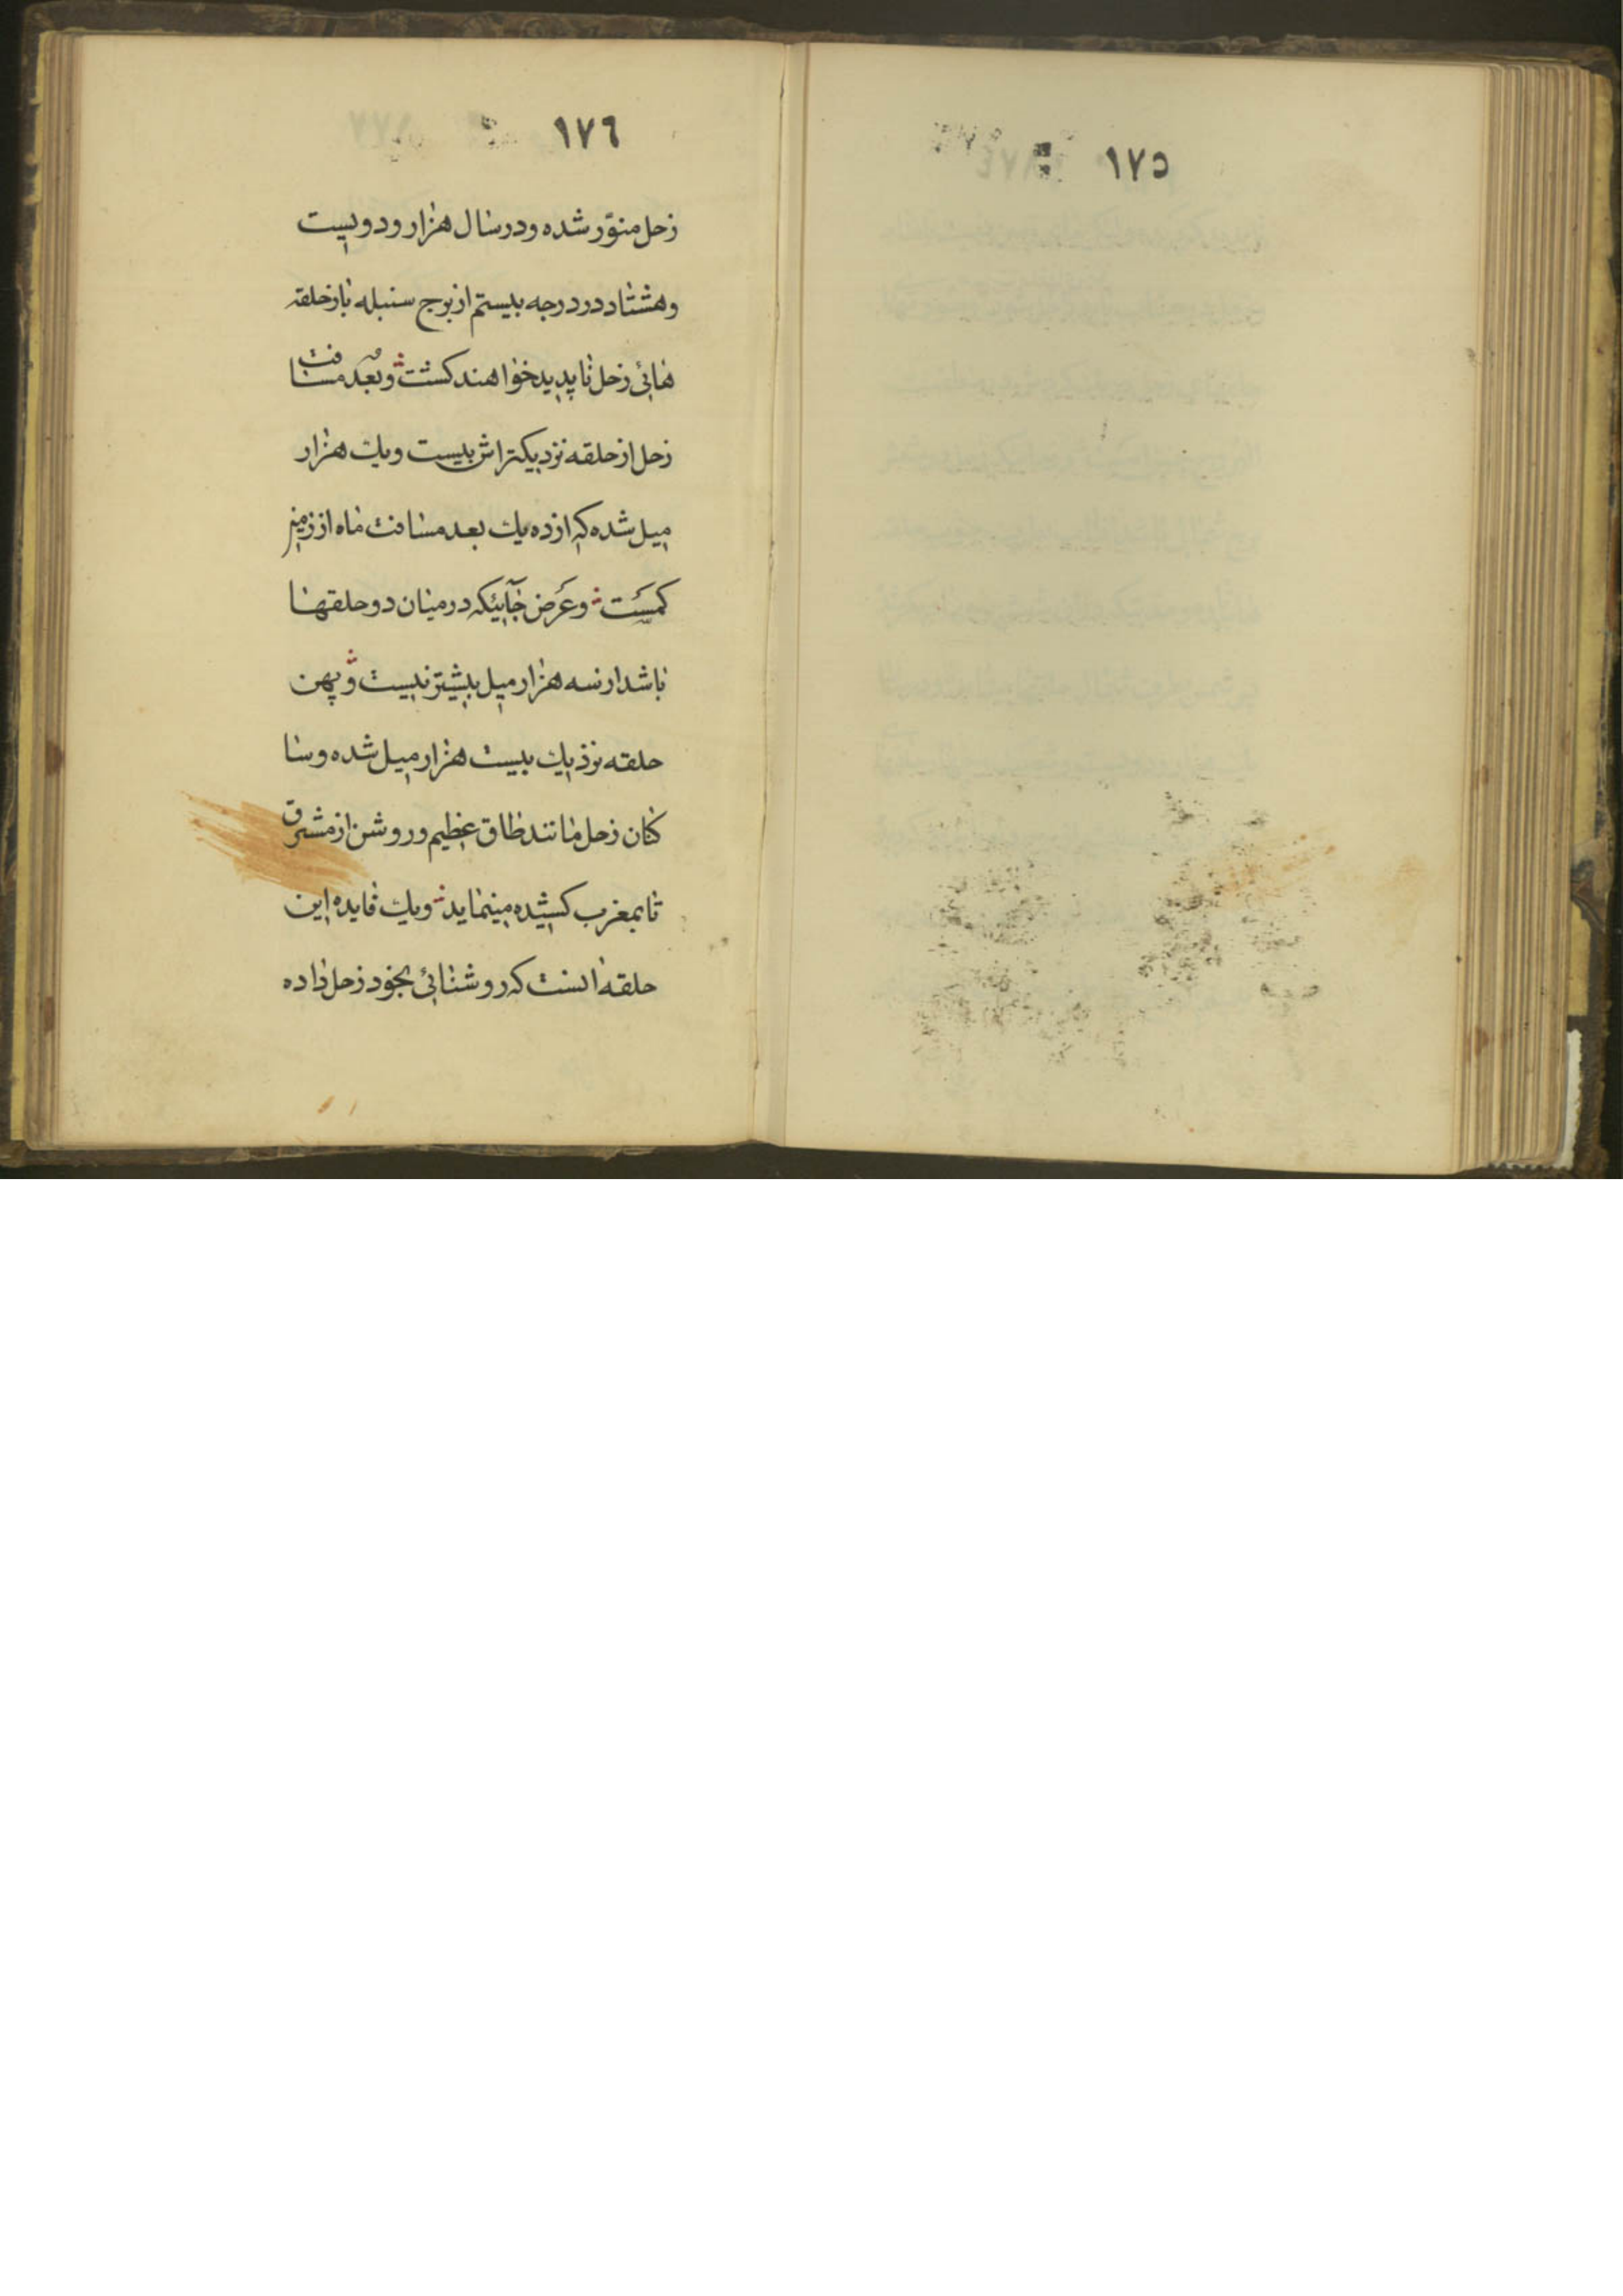 ١٧٥
١٧٦
زحل منوّر شده و در سال هزار و دویست
و هشتاد در درجه بیستم از برج سنبله باز حلقه
هائی زحل ناپدید خواهند کشت و بُعد مسافت
زحل از حلقه نزدیکتراش بیست و یك هزار
میل شده که از ده یك بعد مسافت ماه از زمین
کمست و عَرض جآئیکه در میان دو حلقها
باشد از سه هزار میل بیشتر نیست و پهن
حلقه نزدیك بیست هزار میل شده و سا
کنان زحل مانند طاق عظیم و روشن از مشرق
تا بمغرب کشیده مینماید و یك فایده این
حلقه انست که روشنائی بخود زحل داده